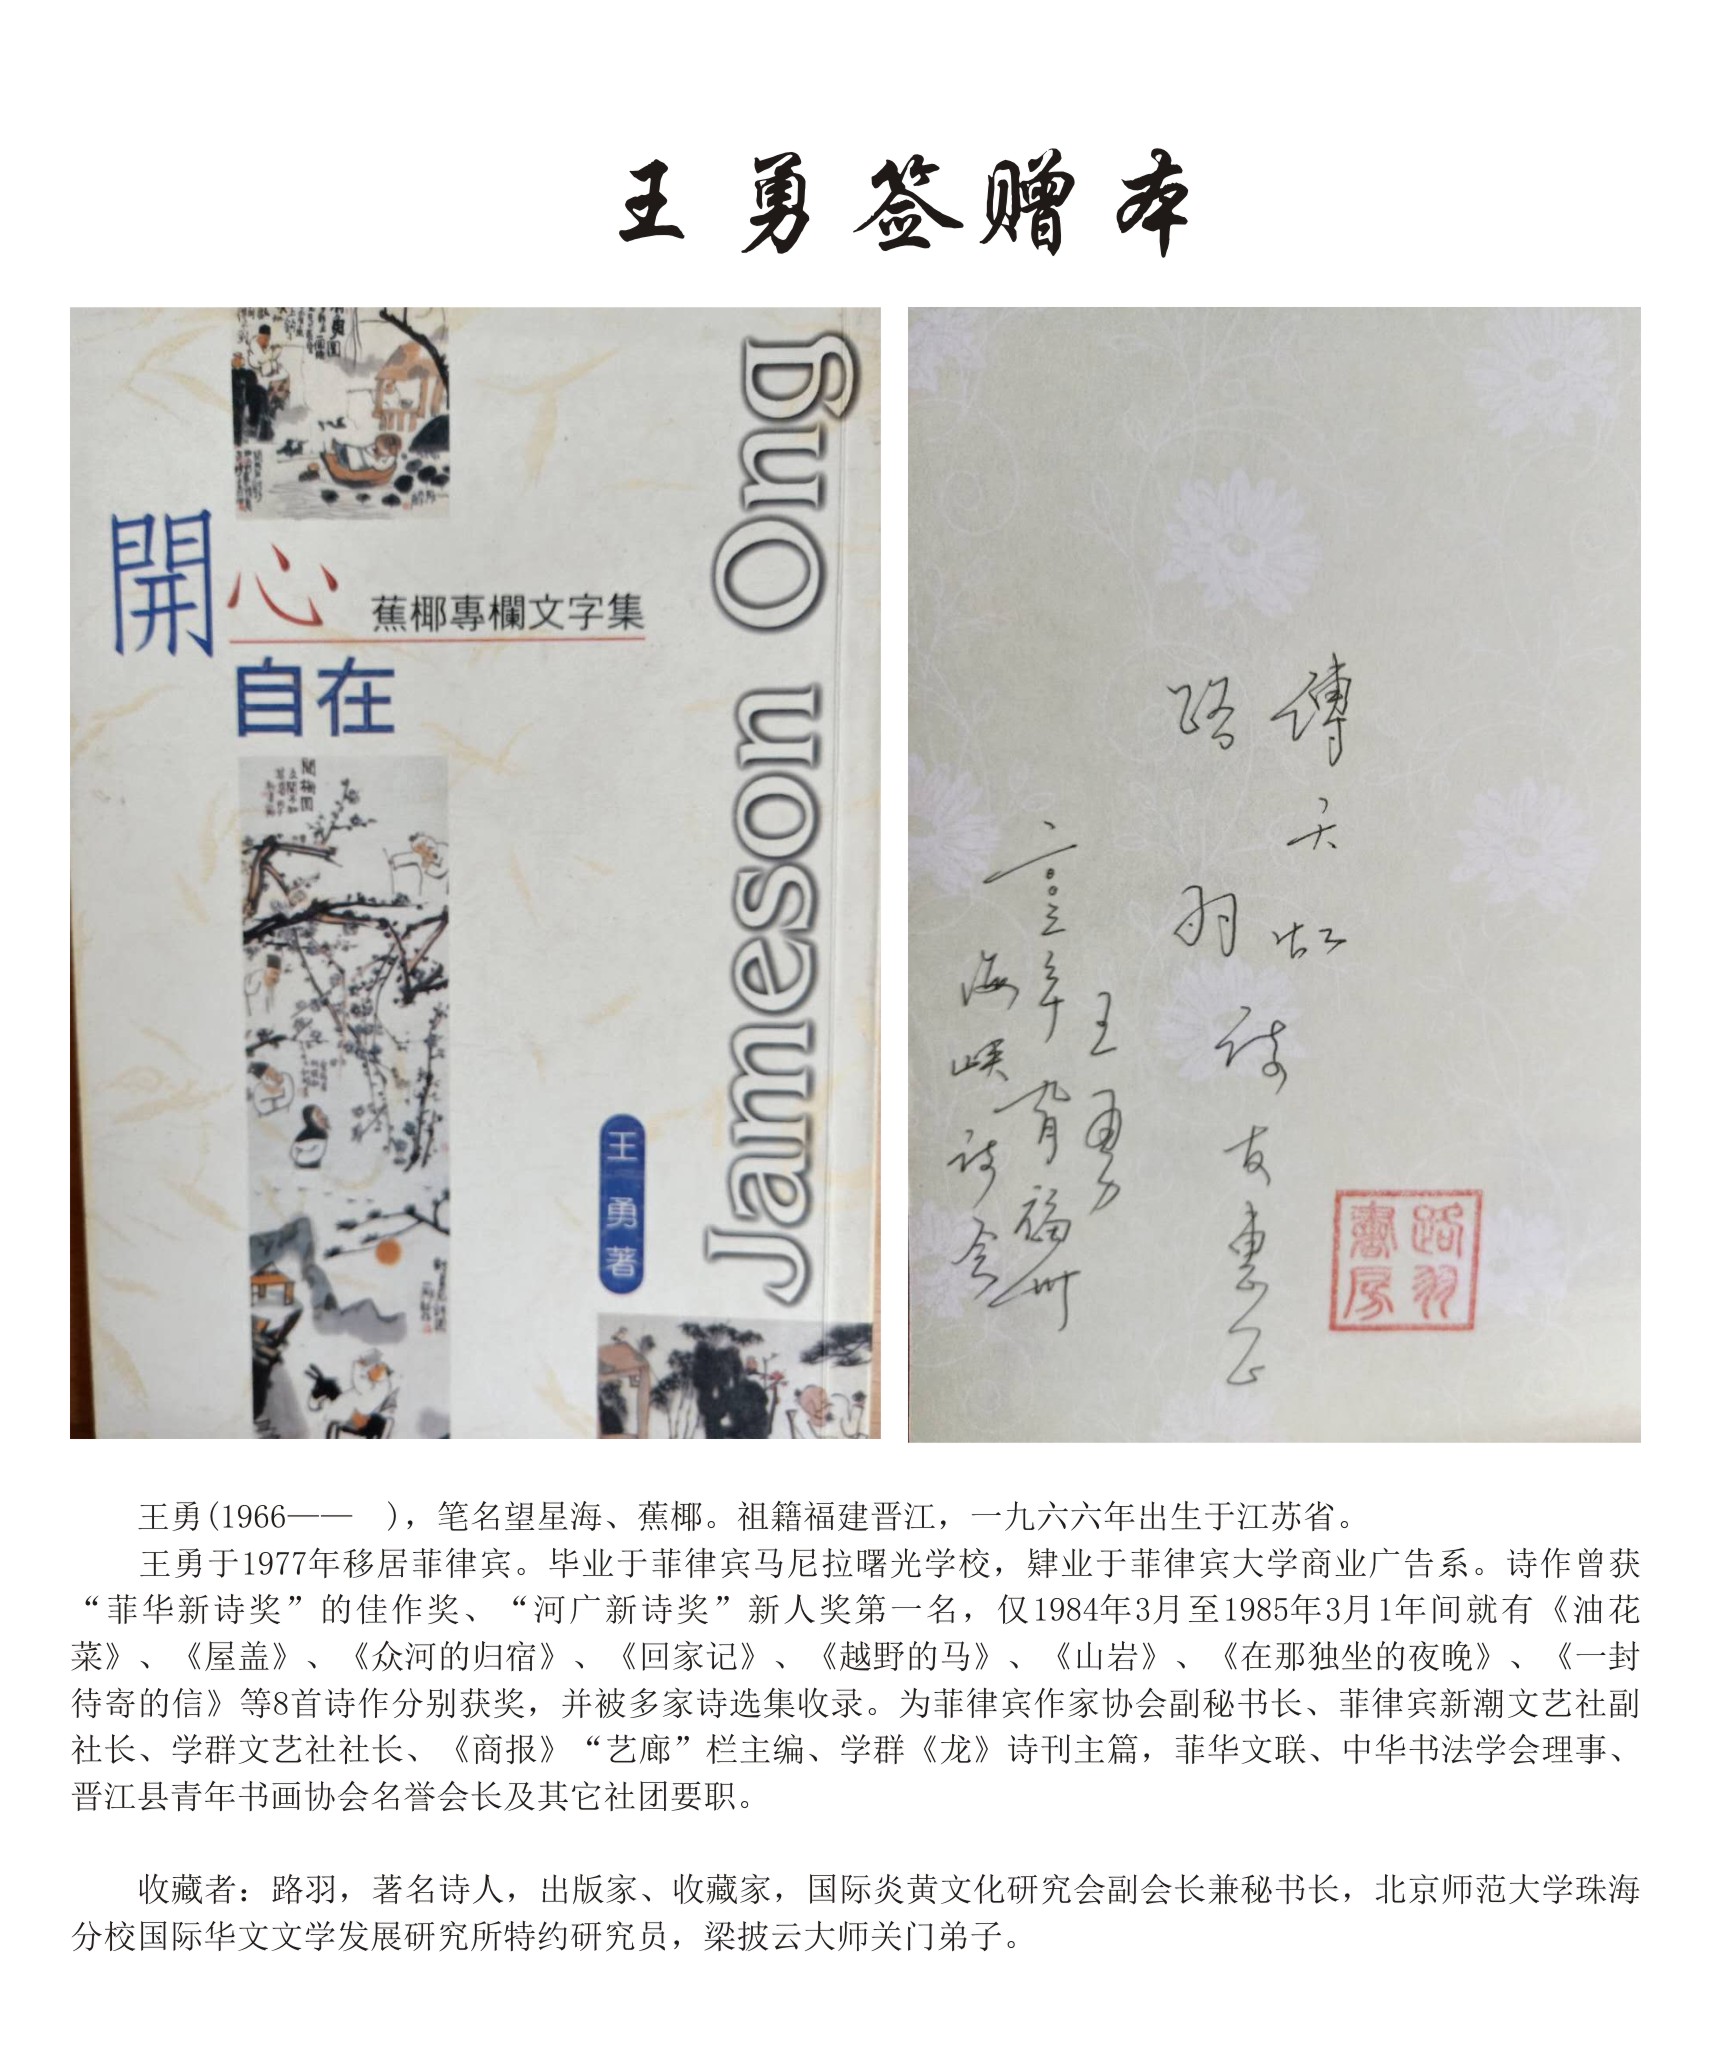 王勇签赠本
開心
蕉椰專欄文字集
自在
Jameson Ong
王勇著
傅天虹
路羽 诗友惠正
王勇
二〇〇三年九月福州
海峡诗会
路羽
書房
王勇(1966—— )，笔名望星海、蕉椰。祖籍福建晋江，一九六六年出生于江苏省。
王勇于1977年移居菲律宾。毕业于菲律宾马尼拉曙光学校，肄业于菲律宾大学商业广告系。诗作曾获
“菲华新诗奖”的佳作奖、“河广新诗奖”新人奖第一名，仅1984年3月至1985年3月1年间就有《油花
菜》、《屋盖》、《众河的归宿》、《回家记》、《越野的马》、《山岩》、《在那独坐的夜晚》、《一封
待寄的信》等8首诗作分别获奖，并被多家诗选集收录。为菲律宾作家协会副秘书长、菲律宾新潮文艺社副
社长、学群文艺社社长、《商报》“艺廊”栏主编、学群《龙》诗刊主篇，菲华文联、中华书法学会理事、
晋江县青年书画协会名誉会长及其它社团要职。
收藏者：路羽，著名诗人，出版家、收藏家，国际炎黄文化研究会副会长兼秘书长，北京师范大学珠海
分校国际华文文学发展研究所特约研究员，梁披云大师关门弟子。